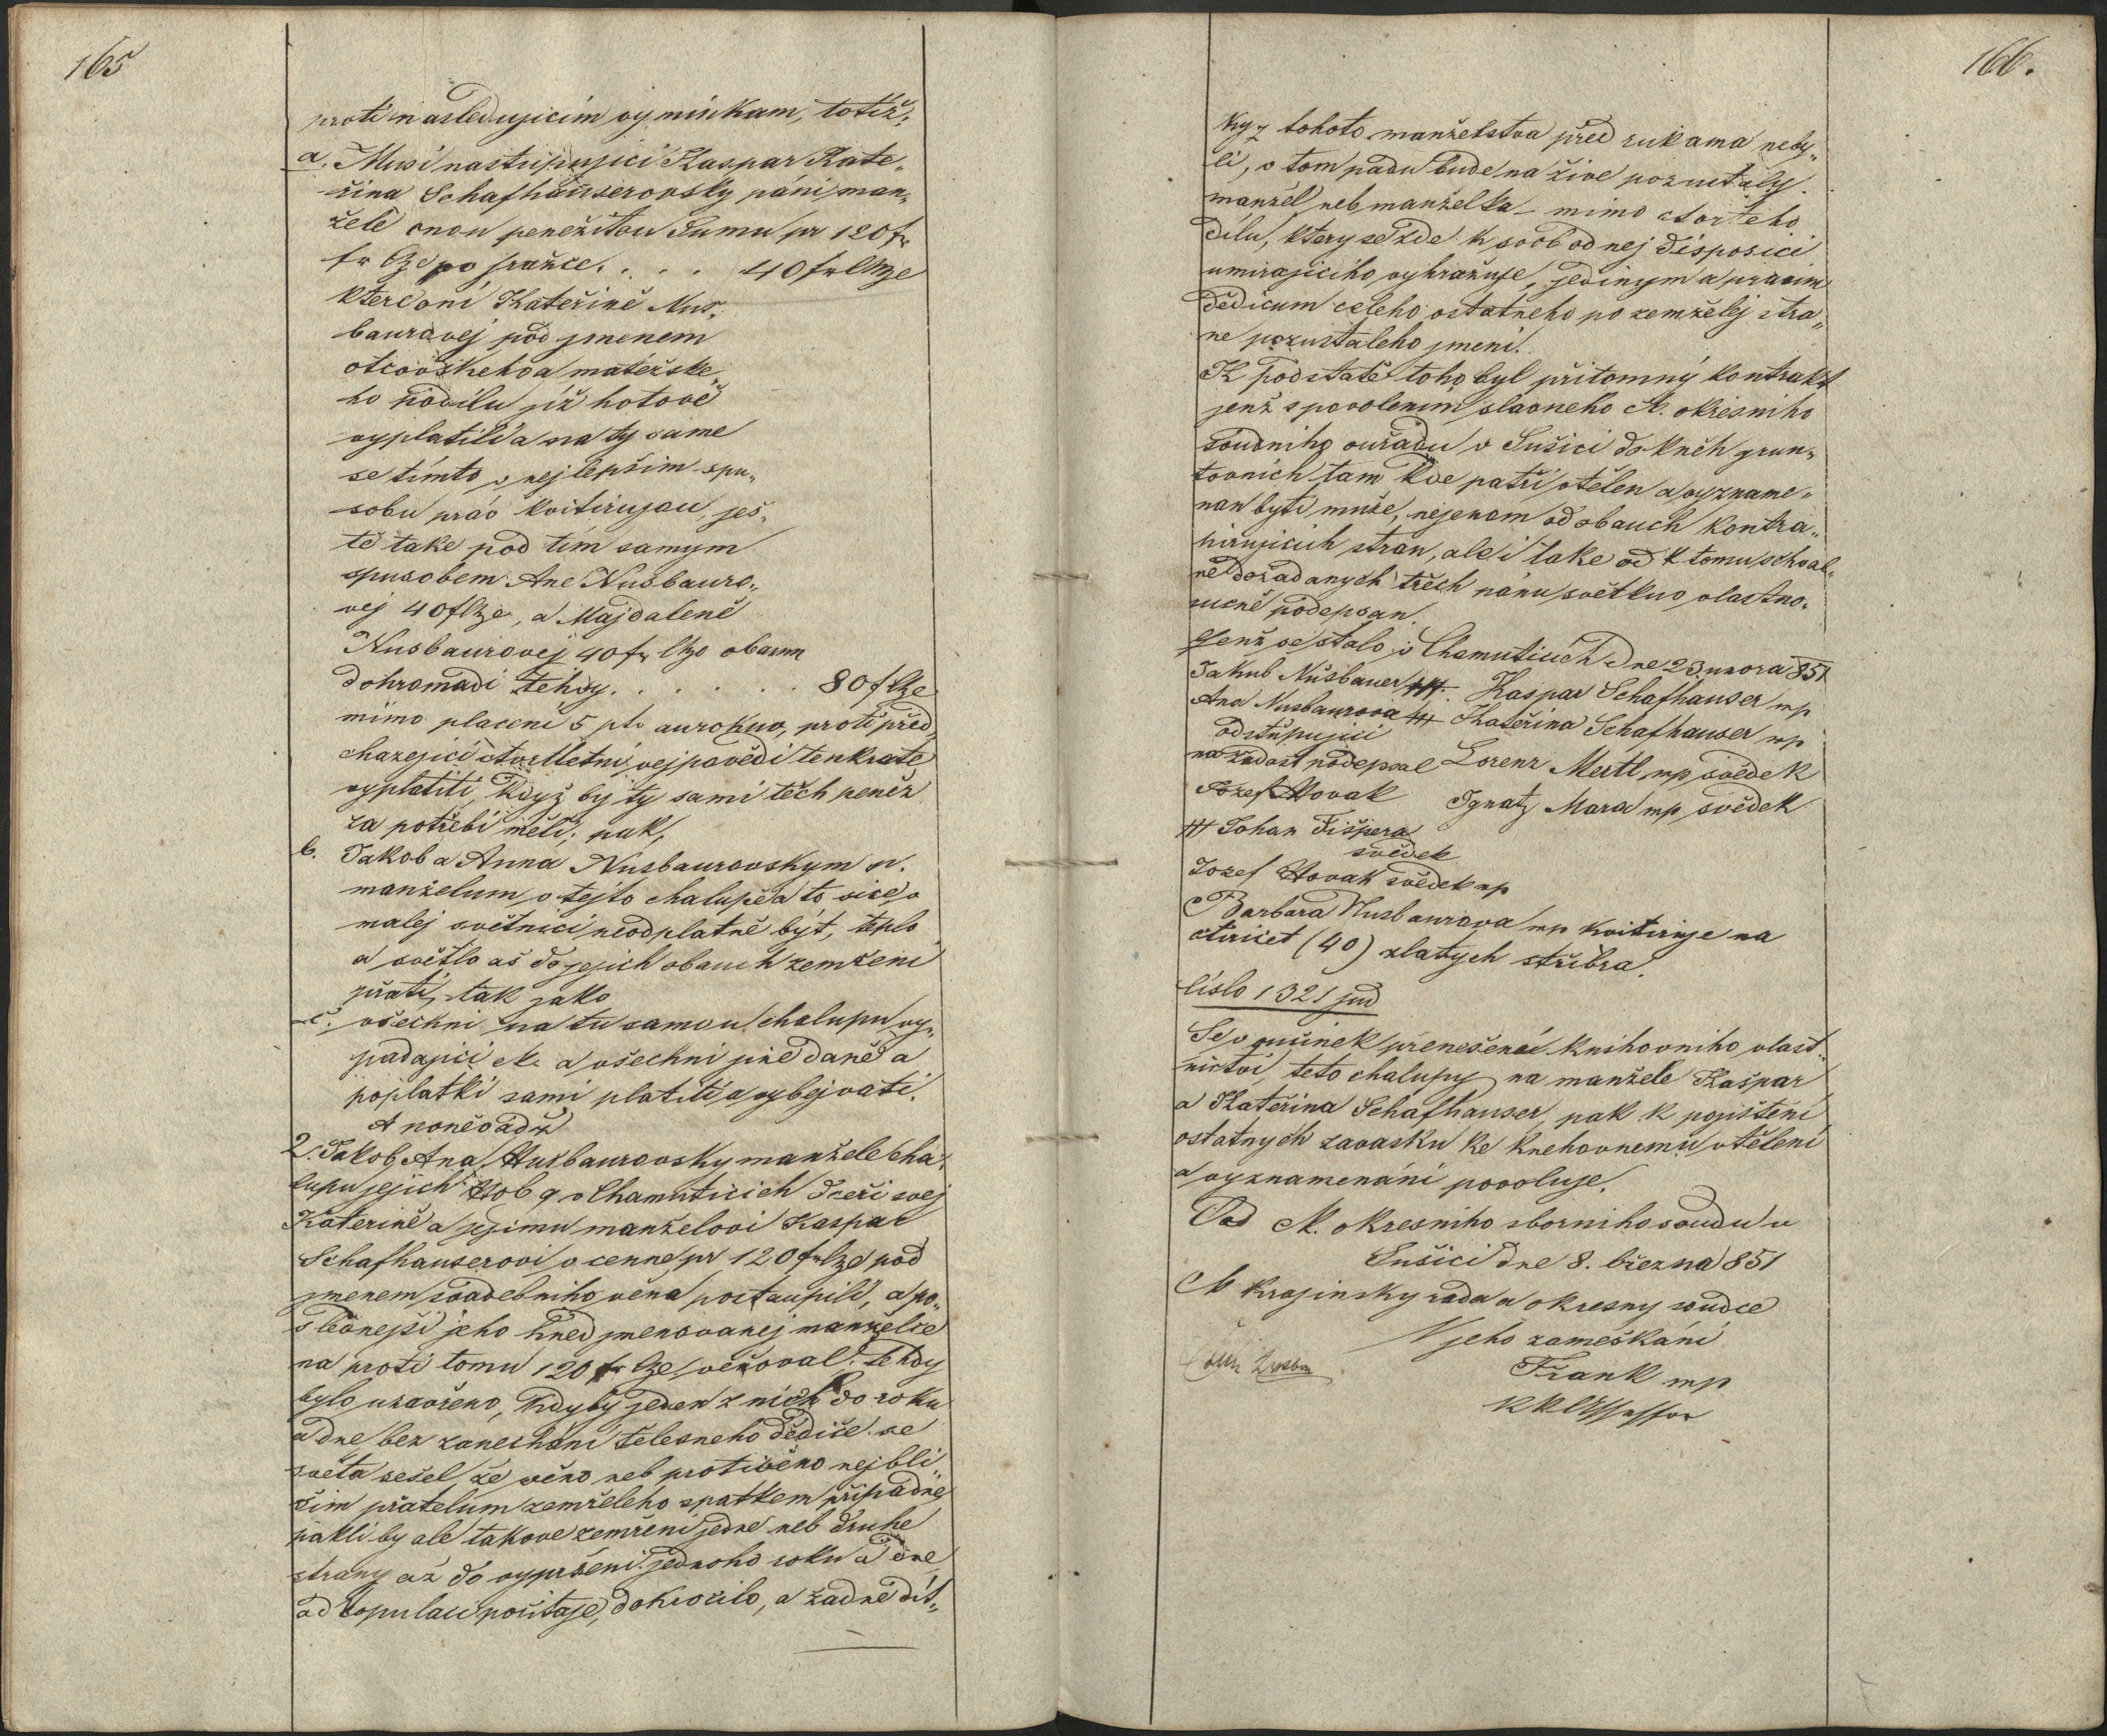 165
proti nasledujicim vyminkam, totiž:
a. Musi nastupujici Kaspar Kate„
řina Schafhauserovsky páni man„
želé onou peněžitou Sumu pr 120 fr
40 fr
které oni Kateřině Nus„
baurovej pod jmenem
otcovskeho a mateřske„
ho podilu již hotově
vyplatili a na ty same
se timto v nejlepšim spu„
sobu práv kvitirujou, ješ„
tě take pod tim samym
spusobem Ane Nusbauro„
vej 40 f, a Majdaleně
Nusbaurovej 40 fr oboum
dohromadi tehdy . . . . . . 80 f
mimo placeni 5 pto aurokuv, proti před„
chazejici čtvrtletni vejpovědi tenkrate
vyplatiti, když by ty sami těch peněz
za potřebi měli; pak,
b. Jakob a Anna Nusbaurovskym p.
manželum v tejto chalupě a to sice v
malej světnici neodplatně být, teplo
a světlo aš do jejich obouch zemřeni
přati, tak jako
c. všechni na tu samou chalupu vy„
padajici a všechni jine daně a
poplatki sami platiti a vybejvati.
A poněvadž
2. Jakob Ana Nusbaurovsky manžele cha„
lupu jejich Nob 9 v Chamuticich Dceři svej
Kateřině a jejimu manželovi Kaspar
Schafhauserovi v cenne pr 120 fr pod
jmenem svadebniho věna postaupili, a po„
slednejši jeho hned jmenovanej manželce
na proti tomu 120 fr věnoval. tehdy
bylo uzavřeno, kdyby jeden z nich do roku
a dne bez zanechani telesneho dědiče se
světa sešel, že věno neb protivěno nejbli„
šim přatelum zemřeleho spatkem připadne
pakli by ale takove zemřeni jedne neb druhe
strany až do vypršeni jednoho roku a dne
od kopulaci počitaje, dokročilo, a žadné dit„
166.
ky z tohoto manželstva před rukama neby„
li, v tom padu bude na živě pozustaly
manžel neb manželka mimo čtvrteho
dilu, ktery se zde k svob od nej disposici
umirajiciho vyhražuje, jedinym a pravim
dědicum celeho ostatneho po zemřelej stra„
ne pozustaleho jmeni.
K podstatě toho byl přitomný kontrakt
jenž s povolenim slavneho k. okresniho
soudniho ouřadu v Sušici do kněh grun„
tovnich tam kde patři vtělen a vyzname„
nan byti muže, nejenom od obauch kontra„
hirujicich stran, ale i take od k tomu schval„
ně dožadanych třech pánu světkuv vlastno„
ručně podepsan.
Jenž se stalo v Chamuticich Dne 23 unora 851
Jakub Nusbauer ††† Kaspar Schafhauser mp
Ana Nusbaurova ††† Kateřina Schafhauser mp
odstupujici
na žadost podepsal Lorenz Mertl mp svědek
Jozef Novak Ignatz Mara mp svědek
††† Johan Fišpera
svědek
Jozef Novak svědek mp
Barbara Nusbaurova mp kvitiruje na
čtiricet (40) zlatych střibra.
Čislo 1321 jud
Se v učinek přenešeni knihovniho vlast„
nictvi, teto chalupy na manžele Kašpar
a Kateřina Schafhauser, pak k pojišteni
ostatnych zavasku ke knehovnemu vtěleni
a vyznamenáni povoluje.
Od k. okresniho sborniho soudu v
Sušici dne 8. března 851
k krajinsky rada a okresny soudce
V jeho zameškáni
Frank mp